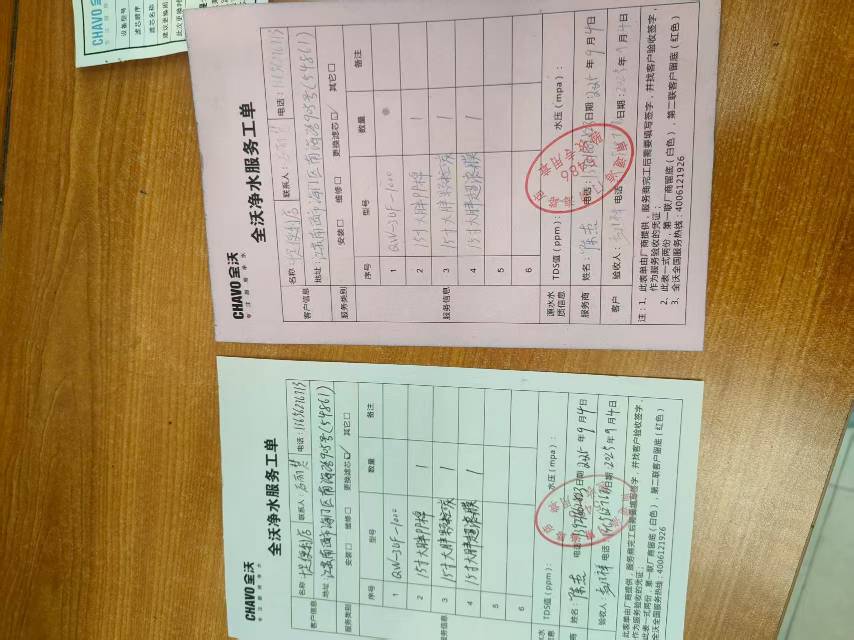 CHAVO
设备型号
滤芯顺序
滤芯名称
CHAVO全沃
专注厨房净水
全沃净水服务工单
客户信息
名称：
联系人：
电话：
地址：江苏南通市海门区南海路905号(54861)
服务类别
安装□ 维修□ 更换滤芯☑ 其它□
服务信息
序号 型号 数量 备注
1 QW-3UF-1000
2 15寸大胖PP棉 1
3 15寸大胖颗粒炭 1
4 15寸大胖超滤膜 1
5
6
源水水质信息
TDS值（ppm）： 水压（mpa）：
服务商 姓名：陈杰 电话： 日期：2025年9月4日
客户 验收人： 电话： 日期：2025年9月4日
注：1、此表单由厂商提供，服务商完工后需要填写签字，并找客户验收签字，
作为服务验收的凭证；
2、此表一式两份，第一联厂商留底（白色），第二联客户留底（红色）
3、全沃全国服务热线：4006121926
CHAVO全沃
专注厨房净水
全沃净水服务工单
客户信息
名称：
联系人：
电话：
地址：江苏南通市海门区南海路905号(54861)
服务类别
安装□ 维修□ 更换滤芯☑ 其它□
服务信息
序号 型号 数量 备注
1 QW-3UF-1000
2 15寸大胖PP棉 1
3 15寸大胖颗粒炭 1
4 15寸大胖超滤膜 1
5
6
TDS值（ppm）： 水压（mpa）：
姓名：陈杰 电话： 日期：2025年9月4日
验收人： 电话： 日期：2025年9月4日
此表单由厂商提供，服务商完工后需要填写签字，并找客户验收签字，
作为服务验收的凭证；
此表一式两份，第一联厂商留底（白色），第二联客户留底（红色）
全沃全国服务热线：4006121926